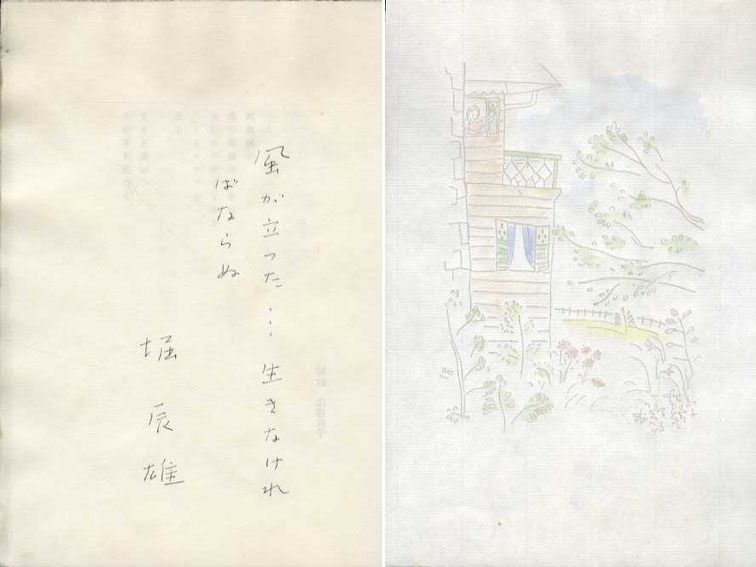 風が立った… 生きなけれ
ばならぬ
堀辰雄